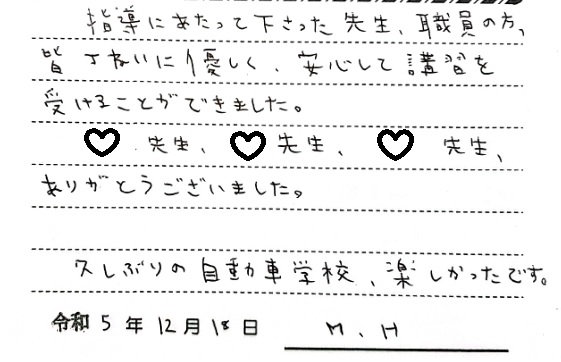 指導にあたって下さった先生、職員の方、
皆丁ねいに優しく、安心して講習を
受けることができました。
♡先生、♡先生、♡先生、
ありがとうございました。
久しぶりの自動車学校、楽しかったです。
令和5年12月18日 M.H